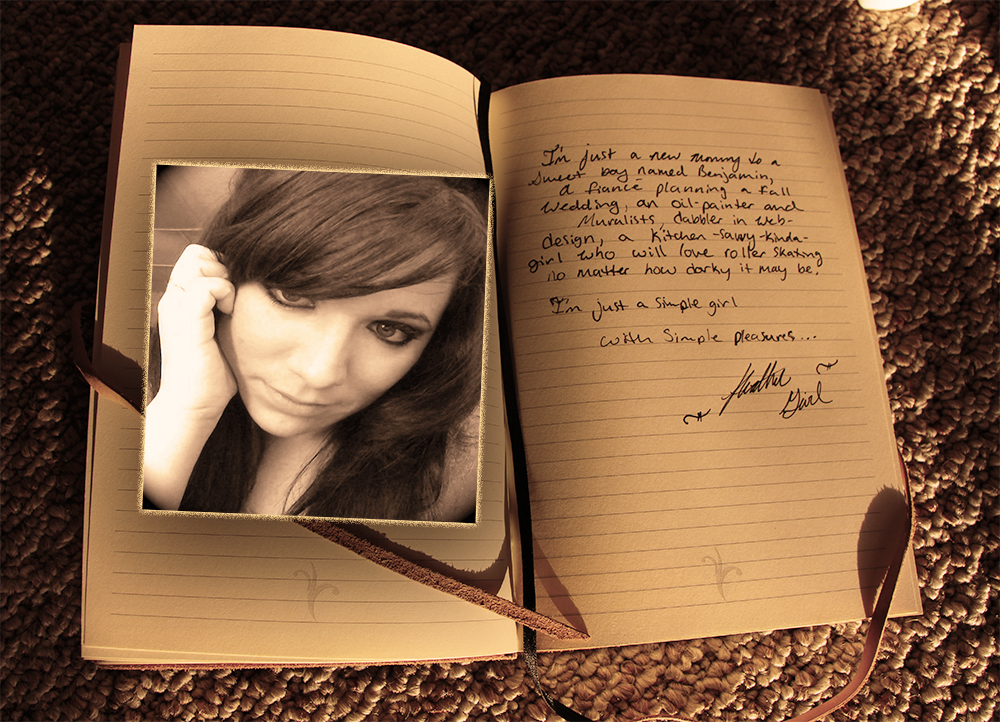 I'm just a new mommy to a
sweet boy named Benjamin,
a fiancé planning a fall
wedding, an oil-painter and
Muralists, dabbler in web-
design, a Kitchen-Savvy-Kinda-
girl who will love roller skating
no matter how dorky it may be.
I'm just a simple girl
with simple pleasures...